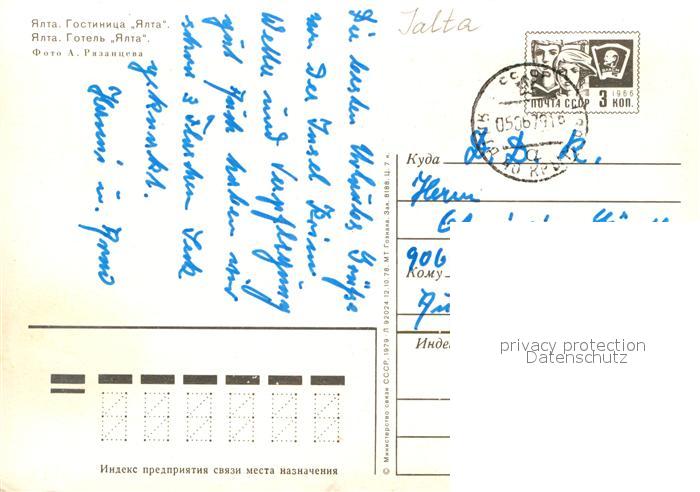 Ялта. Гостиница „Ялта“.
Ялта. Готель „Ялта“.
Фото А. Рязанцева
Jalta
ПОЧТА СССР 3 КОП.
1966
Куда D. D. R.
Herrn
906
Кому
Индек
privacy protection
Datenschutz
Die besten Urlaubs Grüße
von der Insel Krim
Wetter und Verpflegung
gut Auch haben wir
schon 3 Flaschen Sekt
geknackt.
Hanni u.
© Министерство связи СССР, 1979. Л 92024 12.10.78. МТ Гознака. Зак. 8188. Ц. 7 к.
Индекс предприятия связи места назначения